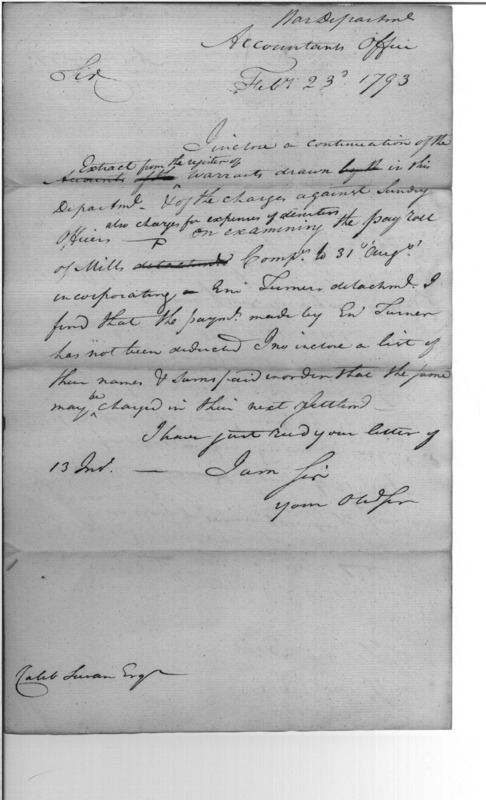 War Departmt
Accountants Office
Sir Feby 23d 1793
I inclose a continuation of the
Extract from the register of
Accounts of the warrants drawn by the in this
Departmt & of the charges against Sundry
also charges for expenses of deserters
Officers — P on examining the pay roll
of Mills detachmt Compy to 31st Augt
incorporating Ens Turners detachmt I
find that the paymts made by Ens Turner
has not been deducted I now inclose a list of
their names & sums paid in order that the same
may be charged in their next settlemt
I have just recd your letter of
13 Inst. — I am Sir
your Obd Ser
Caleb Swan Esqr